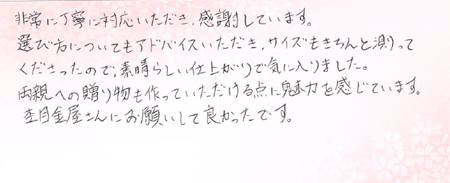 非常に丁寧に対応いただき、感謝しています。
選び方についてもアドバイスいただき、サイズもきちんと測って
くださったので、素晴らしい仕上がりで気に入りました。
両親への贈り物も作っていただける点に魅力を感じています。
杢目金屋さんにお願いして良かったです。